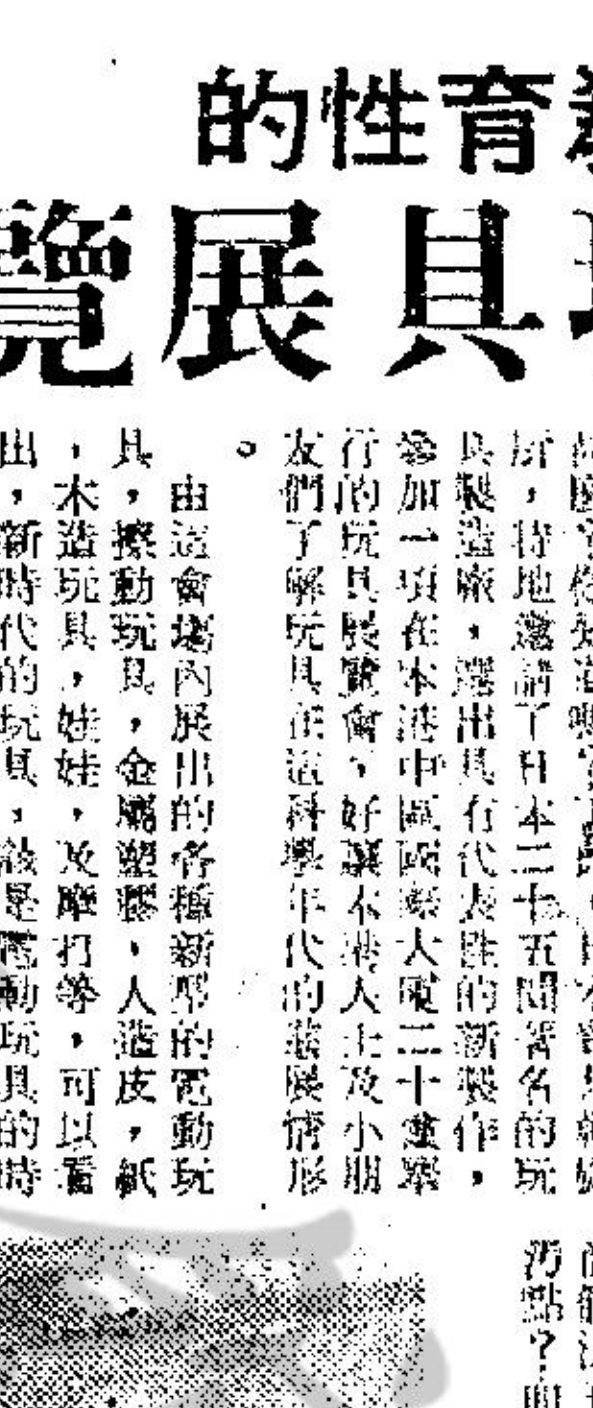 育性的
具展覽
所，特地邀請了日本二十五間著名的玩
具製造廠，選出具有代表性的新製作，
參加一項在本港中區國泰大廈二十舉
行的玩具展覽會，好讓本港人士及小朋
友們了解玩具在這科學年代的發展情形
。
由這會場內展出的各種新型的電動玩
具，擦動玩具，金屬塑膠，人造皮，紙
，木造玩具，娃娃，及摩打等，可以看
出，新時代的玩具，該是電動玩具的時
污點？